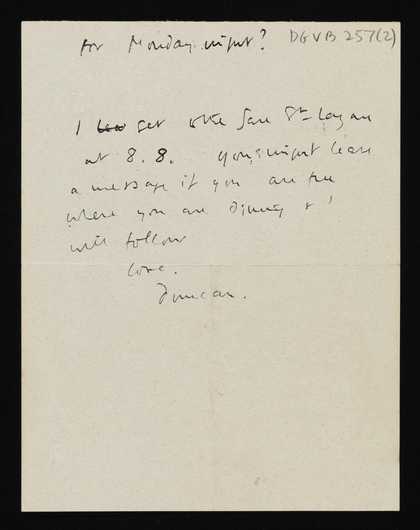 for Monday night? DGVB 257(2)
I get to the Gare St Lazare
at 8.8. You might leave
a message if you are free
where you are dining & I
will follow
love.
Duncan.